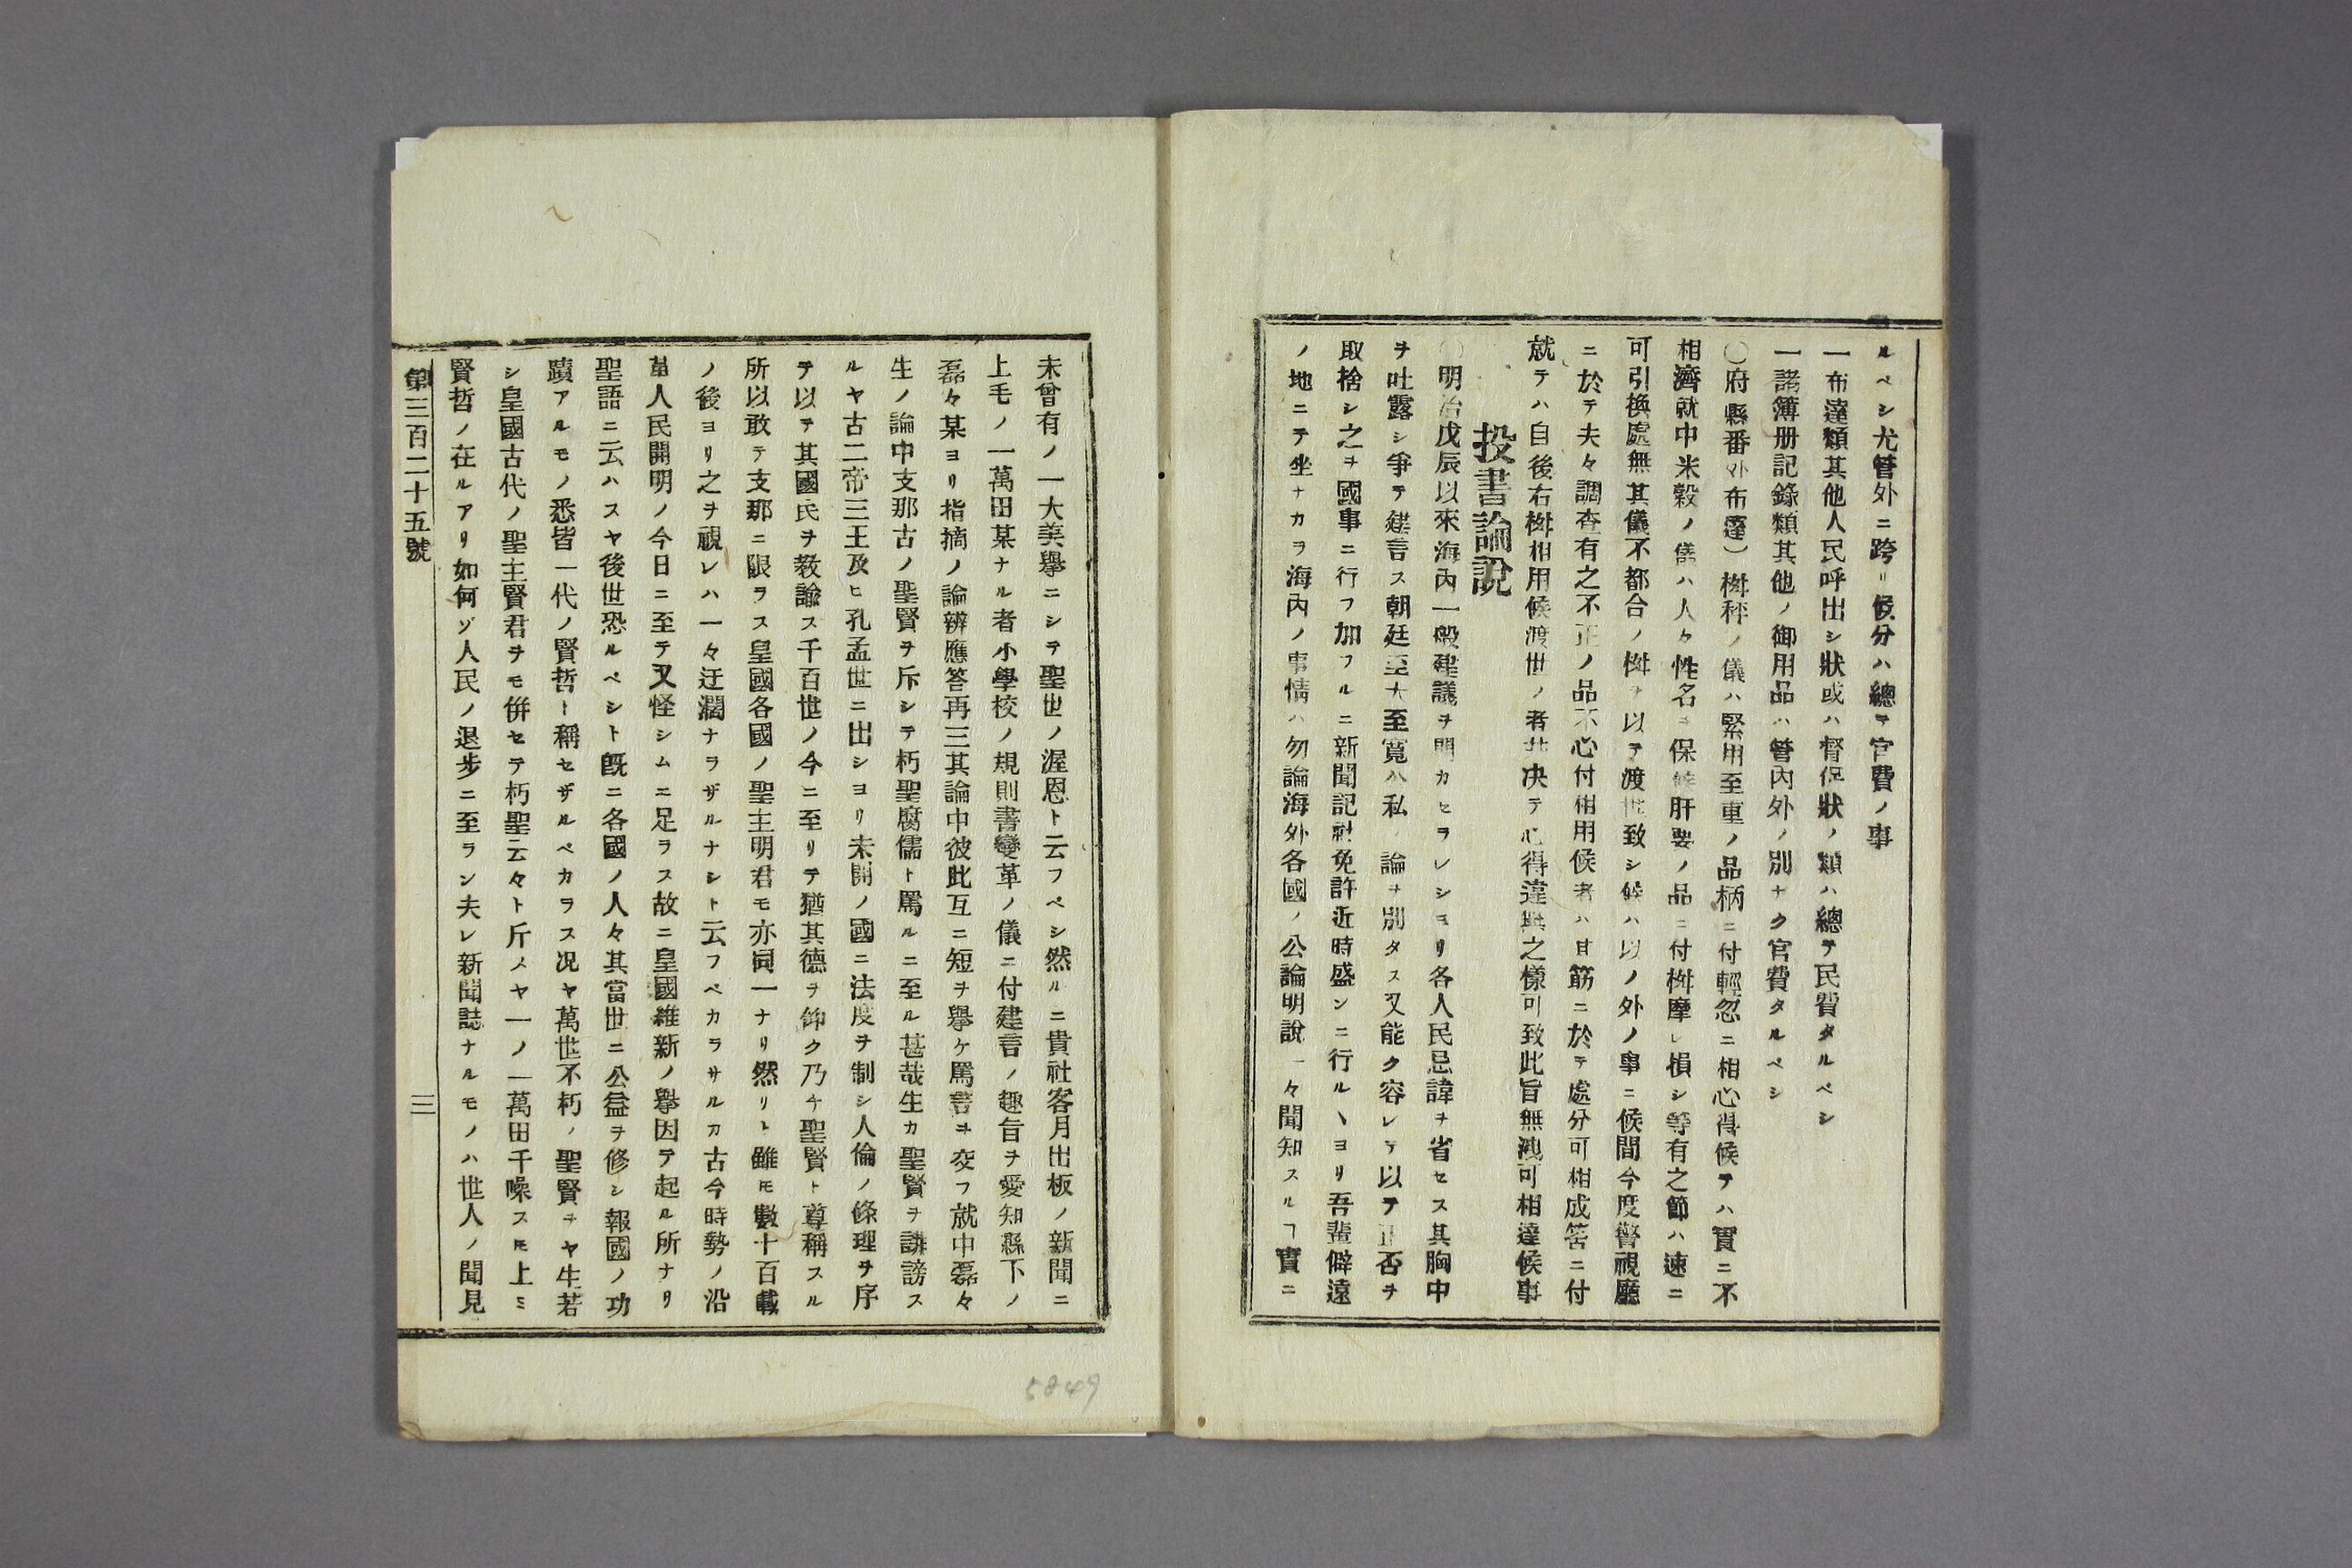 ルベシ尤管外ニ跨リ候分ハ總テ官費ノ事
一布達類其他人民呼出シ狀或ハ督促狀ノ類ハ總テ民費タルベシ
一諸簿册記錄類其他ノ御用品ハ管內外ノ別ナク官費タルベシ
〇府縣番外布達）桝秤ノ儀ハ緊用至重ノ品柄ニ付輕忽ニ相心得候テハ實ニ不
相濟就中米穀ノ儀ハ人々性命ヲ保候肝要ノ品ニ付桝摩レ損シ等有之節ハ速ニ
可引換處無其儀不都合ノ桝ヲ以テ渡世致シ候ハ以ノ外ノ事ニ候間今度警視廳
ニ於テ夫々調査有之不正ノ品不心付相用候者ハ其筋ニ於テ處分可相成筈ニ付
就テハ自後右桝相用候渡世ノ者共决テ心得違無之樣可致此旨無洩可相達候事
投書論說
〇明治戊辰以來海內一般建議ヲ開カセラレシヨリ各人民忌諱ヲ省セス其胸中
ヲ吐露シ爭テ建言ス朝廷至大至寬公私ノ論ヲ別タス又能ク容レテ以テ正否ヲ
取捨シ之ヲ國事ニ行フ加フルニ新聞記社免許近時盛ンニ行ルヽヨリ吾輩僻遠
ノ地ニテ坐ナカラ海內ノ事情ハ勿論海外各國ノ公論明說一々聞知スルヿ實ニ
未曾有ノ一大美擧ニシテ聖世ノ渥恩ト云フベシ然ルニ貴社客月出板ノ新聞ニ
上毛ノ一萬田某ナル者小學校ノ規則書變革ノ儀ニ付建言ノ趣旨ヲ愛知縣下ノ
磊々某ヨリ指摘ノ論辨應答再三其論中彼此互ニ短ヲ擧ケ罵詈ヲ交フ就中磊々
生ノ論中支那古ノ聖賢ヲ斥シテ朽聖腐儒ト罵ルニ至ル甚哉生カ聖賢ヲ誹謗ス
ルヤ古二帝三王及ヒ孔孟世ニ出シヨリ未開ノ國ニ法度ヲ制シ人倫ノ條理ヲ序
テ以テ其國民ヲ敎諭ス千百世ノ今ニ至リテ猶其德ヲ仰ク乃チ聖賢ト尊稱スル
所以敢テ支那ニ限ラス皇國各國ノ聖主明君モ亦同一ナリ然リト雖モ數十百載
ノ後ヨリ之ヲ視レハ一々迂濶ナラザルナシト云フベカラサルカ古今時勢ノ沿
革人民開明ノ今日ニ至テ又怪シムニ足ラス故ニ皇國維新ノ擧因テ起ル所ナリ
聖語ニ云ハスヤ後世恐ルベシト旣ニ各國ノ人々其當世ニ公益ヲ修シ報國ノ功
蹟アルモノ悉皆一代ノ賢哲ト稱セザルベカラス况ヤ萬世不朽ノ聖賢ヲヤ生若
シ皇國古代ノ聖主賢君ヲモ倂セテ朽聖云々ト斤メヤ一ノ一萬田千喚スモ上ミ
賢哲ノ在ルアリ如何ゾ人民ノ退步ニ至ラン夫レ新聞誌ナルモノハ世人ノ聞見
第三百二十五號
三
5849